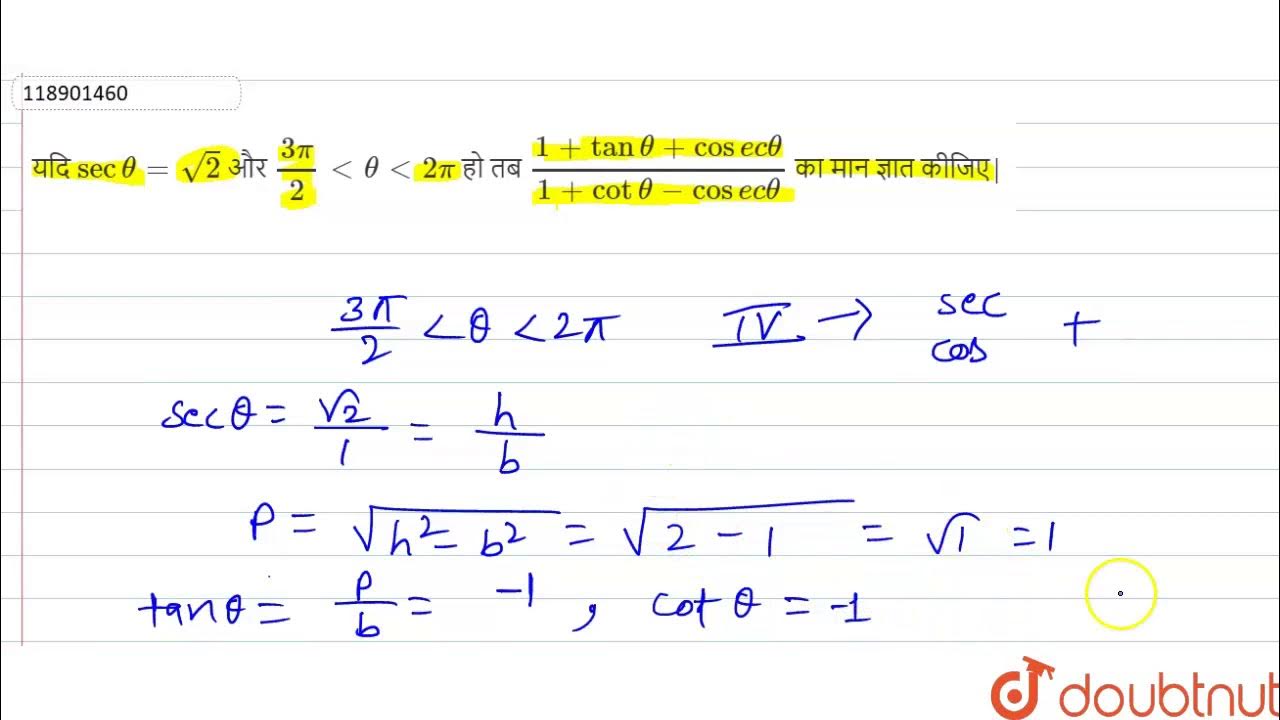 118901460
यदि sec θ = √2 और 3π/2 < θ < 2π हो तब (1 + tan θ + cos ecθ)/(1 + cot θ − cos ecθ) का मान ज्ञात कीजिए|
3π/2 < θ < 2π IV → sec cos +
sec θ = √2/1 = h/b
P = √(h² − b²) = √(2 − 1) = √1 = 1
tan θ = P/b = -1 , cot θ = -1
doubtnut